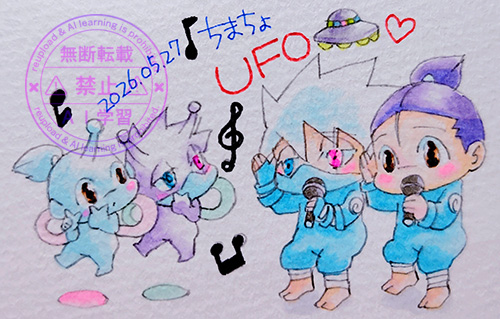 reupload & AI learning is prohibited
無断転載
禁止
AI学習
reupload & AI learning is prohibited
2026.05.27
ちまちょ
UFO